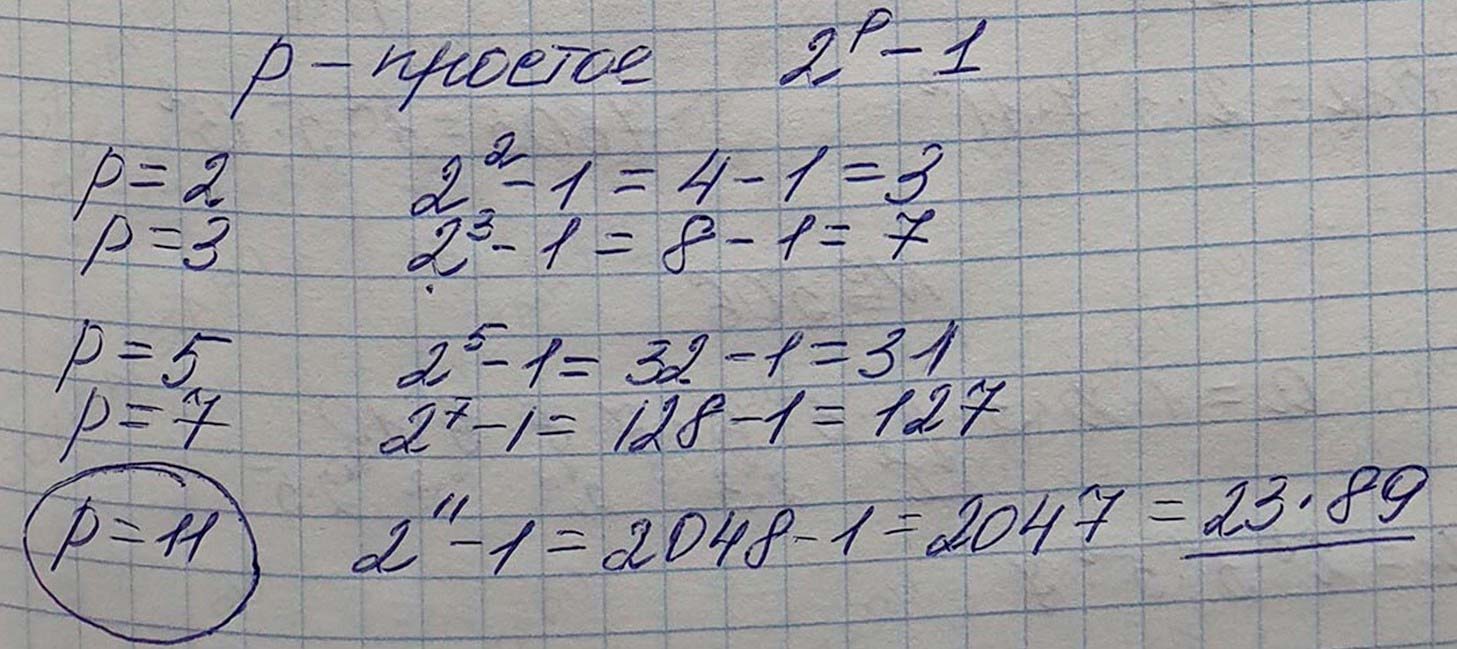 p – простое 2^p – 1
p = 2 2^2 – 1 = 4 – 1 = 3
p = 3 2^3 – 1 = 8 – 1 = 7
p = 5 2^5 – 1 = 32 – 1 = 31
p = 7 2^7 – 1 = 128 – 1 = 127
p = 11 2^11 – 1 = 2048 – 1 = 2047 = 23·89